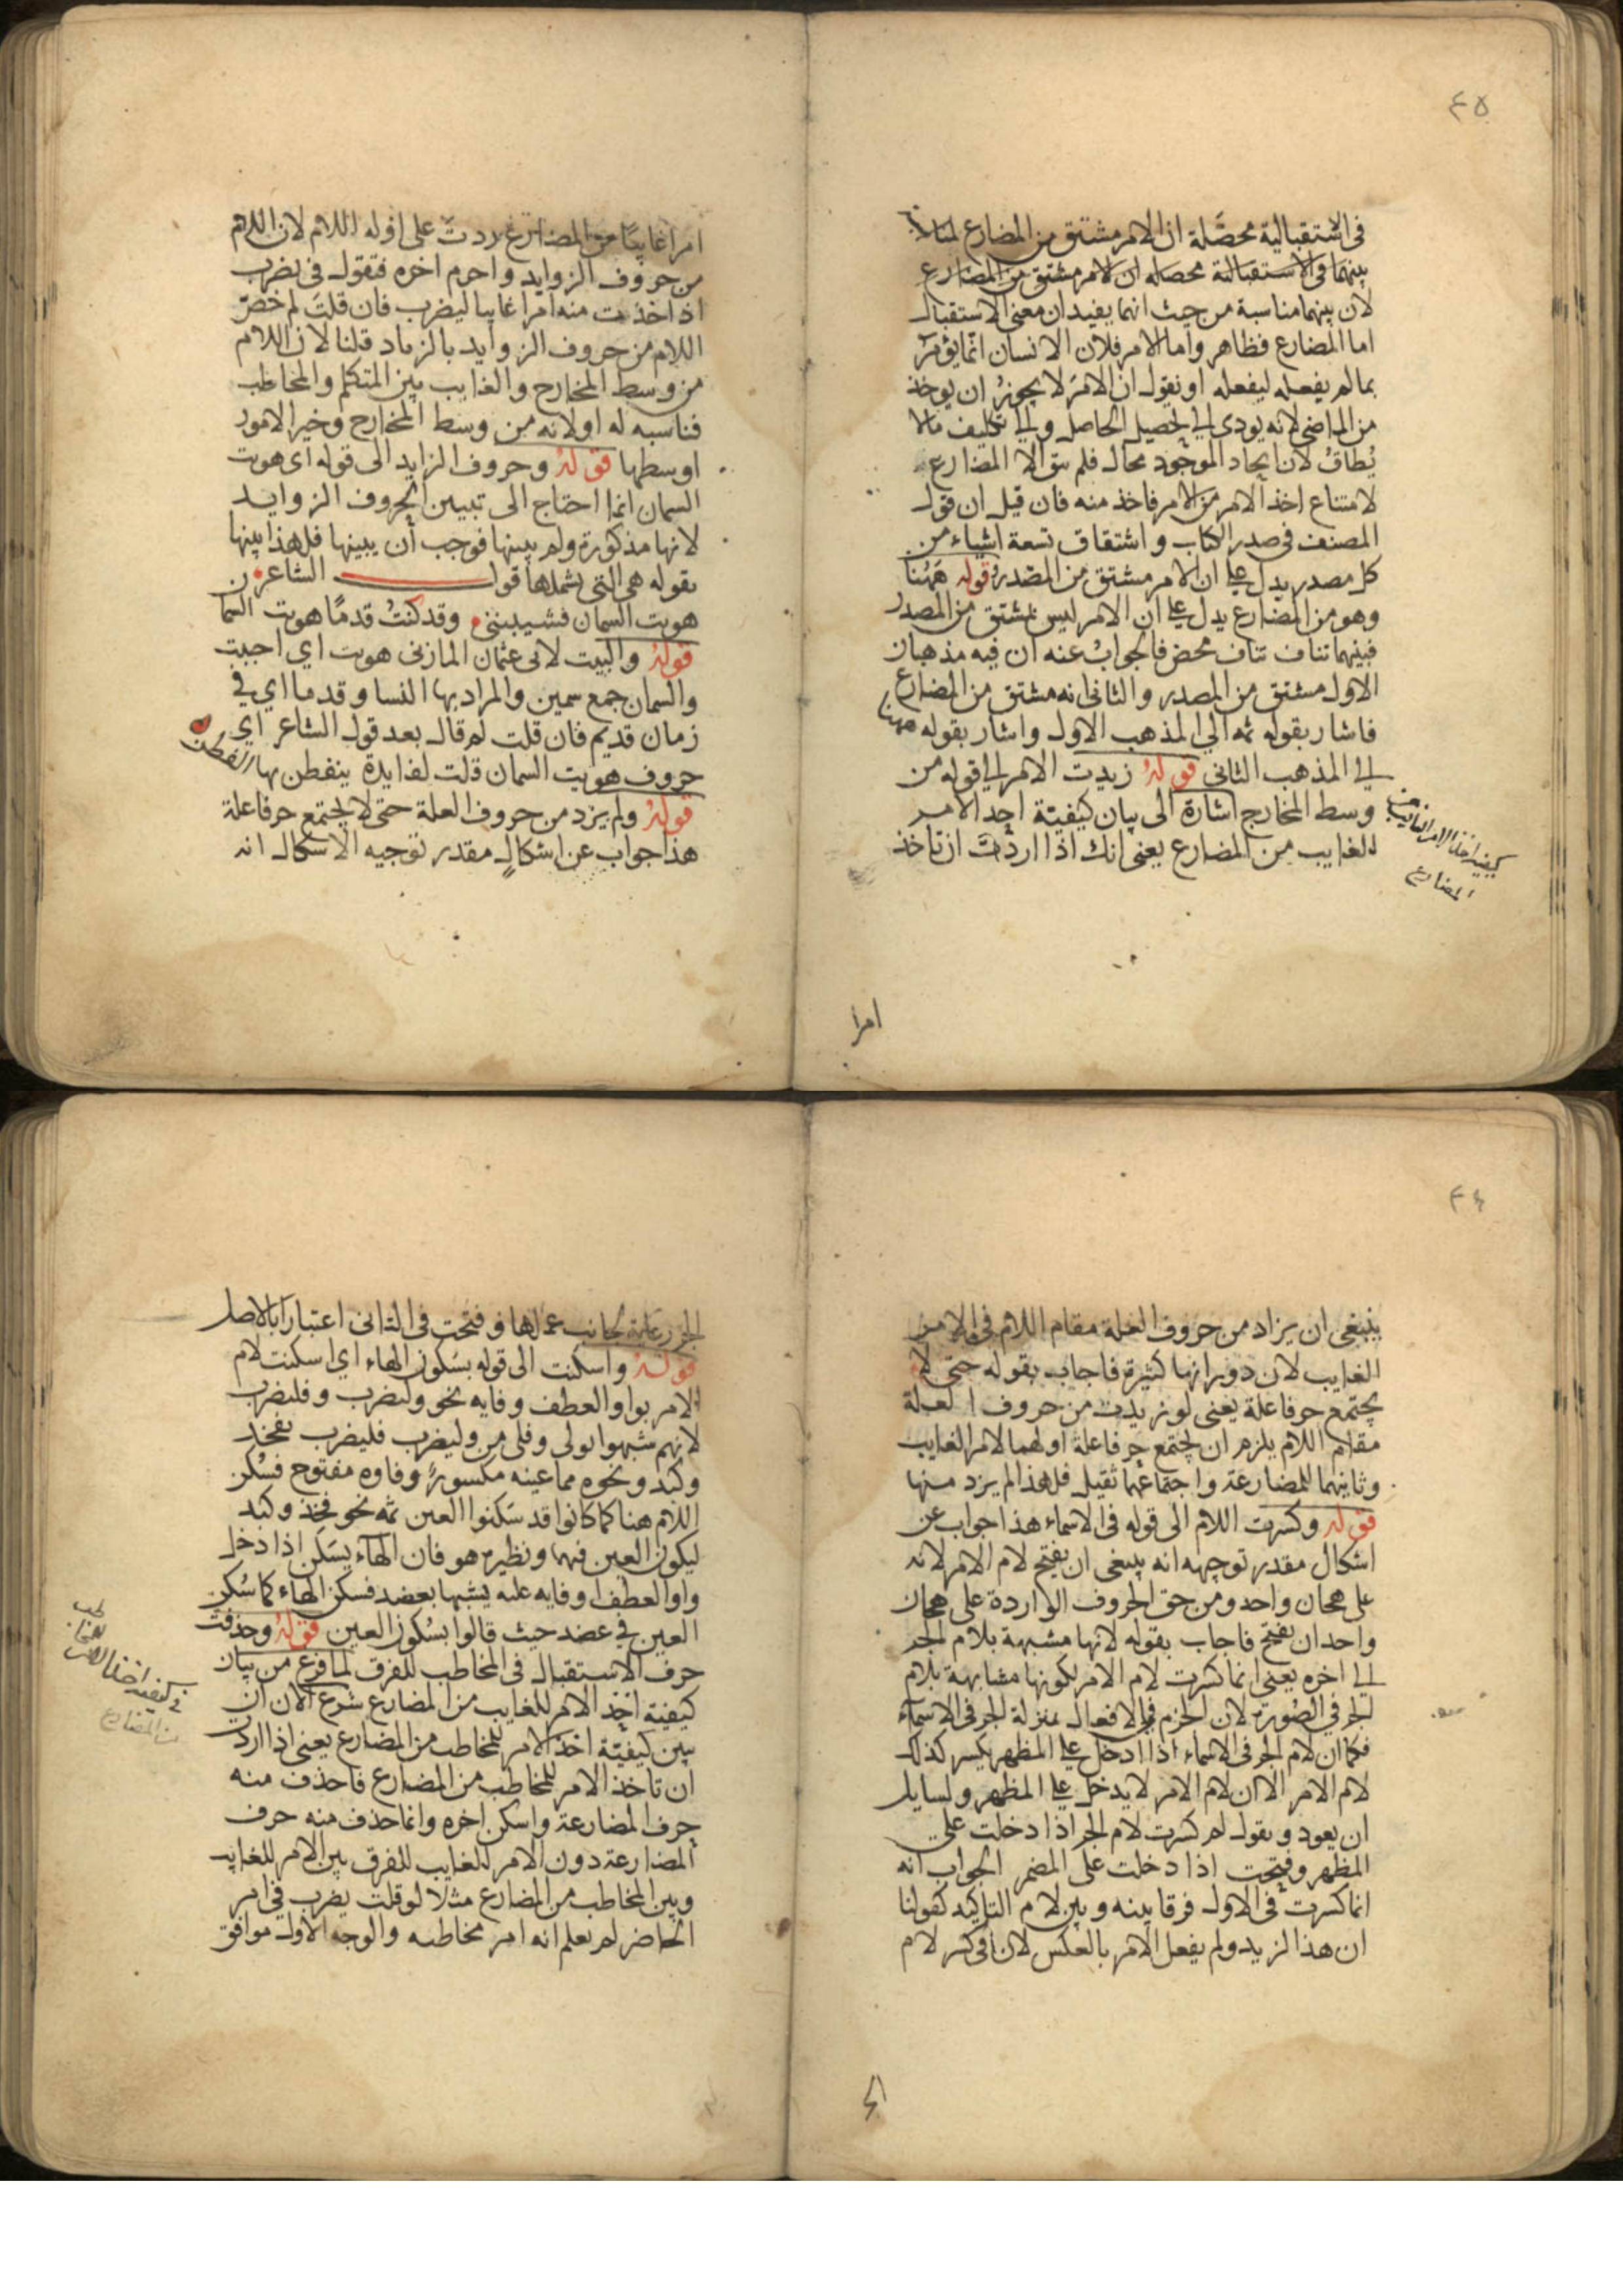 ٤٥
في الاستقبالية محصّلة ان الامر مشتق من المضارع لمناسبة
بينهما في الاستقبالية محصله ان الامر مشتق من المضارع
لان بينهما مناسبة من حيث انهما يفيدان معنى الاستقبال
اما المضارع فظاهر واما الامر فلان الانسان انما يؤمر
بما لم يفعله ليفعله او نقول ان الامر لا يجوز ان يوخذ
من الماضي لانه يودى الى تحصيل الحاصل والى تكليف مالا
يُطاق لان ايجاد الموجود محال فلم يبق الا المضارع
لامتناع اخذ الامر من الامر فاخذ منه فان قيل ان قول
المصنف في صدر الكتاب واشتقاق تسعة اشياء من
كل مصدر يدل على ان الامر مشتق من المصدر وقوله ههنا
وهو من المضارع يدل على ان الامر ليس بمشتق من المصدر
فبينهما تناف تناف محض فالجواب عنه ان فيه مذهبان
الاول مشتق من المصدر والثاني انه مشتق من المضارع
فاشار بقوله ثمه الى المذهب الاول واشار بقوله ههنا
الى المذهب الثاني قوله زيدت الامر الى قوله من
وسط المخارج اشارة الى بيان كيفية اخذ الامر
الغايب من المضارع يعنى انك اذا اردت ان تاخذ
كيفية اخذ الامر الغايب من
المضارع
امرا
امرا غايبا من المضارع زدت على اوله اللام لان اللام
من حروف الزوايد واجزم اخره فتقول في يضرب
اذ اخذت منه امرا غايبا ليضرب فان قلت لم خصّ
اللام من حروف الزوايد بالزياد قلنا لان اللام
من وسط المخارج والغايب بين المتكلم والمخاطب
فناسبه له اولانه من وسط المخارج وخير الامور
اوسطها قوله وحروف الزايد الى قوله اى هوت
السمان انما احتاج الى تبيين الحروف الزوايد
لانها مذكورة ولم يبينها فوجب أن يبينها فلهذا بينها
بقوله هي التي يشملها قول الشاعر ن
هويت السمان فشيبننى وقد كنت قدمًا هويت السما
قوله والبيت لابى عثمان المازنى هويت اي احببت
والسمان جمع سمين والمراد بها النسا وقدما اي في
زمان قديم فان قلت لم قال بعد قول الشاعر اي
حروف هويت السمان قلت لفايدة ينفطن بها الفطن
قوله ولم يزد من حروف العلة حتى لا يجتمع حرفا علة
هذا جواب عن اشكالٍ مقدر توجيه الاشكال انه
٤٦
ينبغى ان يزاد من حروف العلة مقام اللام في الامر
الغايب لان دورانها كثيرة فاجاب بقوله حتى لا
يجتمع حرفا علة يعنى لو زيدت من حروف العلة
مقام اللام يلزم ان يجتمع حرفا علة اولهما لامر الغايب
وثانيهما للمضارعة واجتماعهما ثقيل فلهذا لم يزد منها
قوله وكسرت اللام الى قوله في الاسماء هذا جواب عن
اشكال مقدر توجيهه انه ينبغى ان يفتح لام الامر لانه
على هجان واحد ومن حق الحروف الواردة على هجان
واحد ان يفتح فاجاب بقوله لانها مشبهة بلام الجر
الى اخره يعنى انما كسرت لام الامر لكونها مشابهة بلام
الجر في الصورة لان الجزم في الافعال بمنزلة الجر في الاسماء
فكما ان لام الجر في الاسماء اذا ادخل على المظهر يكسر كذلك
لام الامر الا ان لام الامر لا يدخل على المظهر ولسايل
ان يعود ويقول لم كسرت لام الجر اذا دخلت على
المظهر وفتحت اذا دخلت على المضمر الجواب انه
انما كسرت في الاول فرقا بينه وبين لام التاكيد كقولنا
ان هذا لزيد ولم يفعل الامر بالعكس لان في كسر لام
الج
الجر رعاية لجانب عملها وفتحت في الثاني اعتبارًا بالاصل
قوله واسكنت الى قوله بسكون الهاء اي اسكنت لام
الامر بواو العطف وفايه نحو وليضرب وفليضرب
لانهم شبهوا بولى وفلى من وليضرب فليضرب بفخذ
وكبد ونحوه مما عينه مكسورة وفاوه مفتوح فسكن
اللام هنا كما كانوا قد سكنوا العين ثمه نحو فخذ وكبد
ليكون العين فيها ونظيره هو فان الهاء يسكن اذا دخل
واو العطف او فايه عليه يشبها بعضد فسكن الهاء كما سكن
العين في عضد حيث قالوا بسكون العين قوله وحذفت
حرف الاستقبال في المخاطب للفرق لما فرغ من بيان
كيفية اخذ الامر للغايب من المضارع شرع الان ان
يبين كيفية اخذ الامر للمخاطب من المضارع يعنى اذا اردت
ان تاخذ الامر للمخاطب من المضارع فاحذف منه
حرف المضارعة واسكن اخره وانما حذف منه حرف
المضارعة دون الامر للغايب للفرق بين الامر للغايب
وبين المخاطب من المضارع مثلا لو قلت يضرب في امر
الحاضر لم يعلم انه امر مخاطبه والوجه الاول موافق
في كيفية اخذ الامر للمخاطب
من المضارع